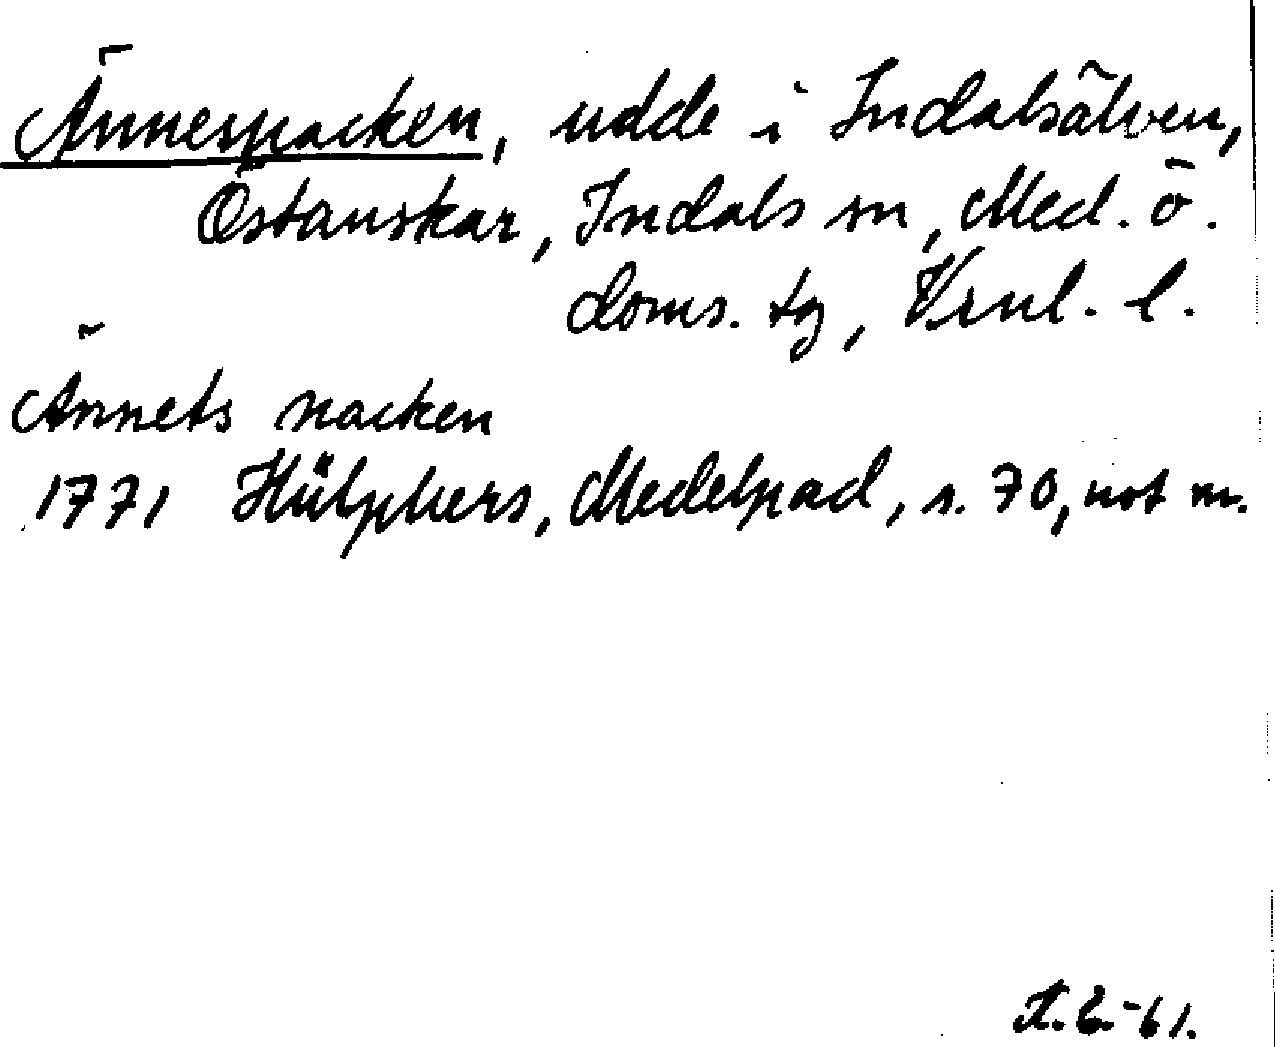 Ännesnacken, udde i Indalsälven,
Östanskär, Indals sn, Med. ö.
doms. tg, Vrnl. l.
Ännets nacken
1771 Hülphers, Medelpad, s. 70, not m.
-61.